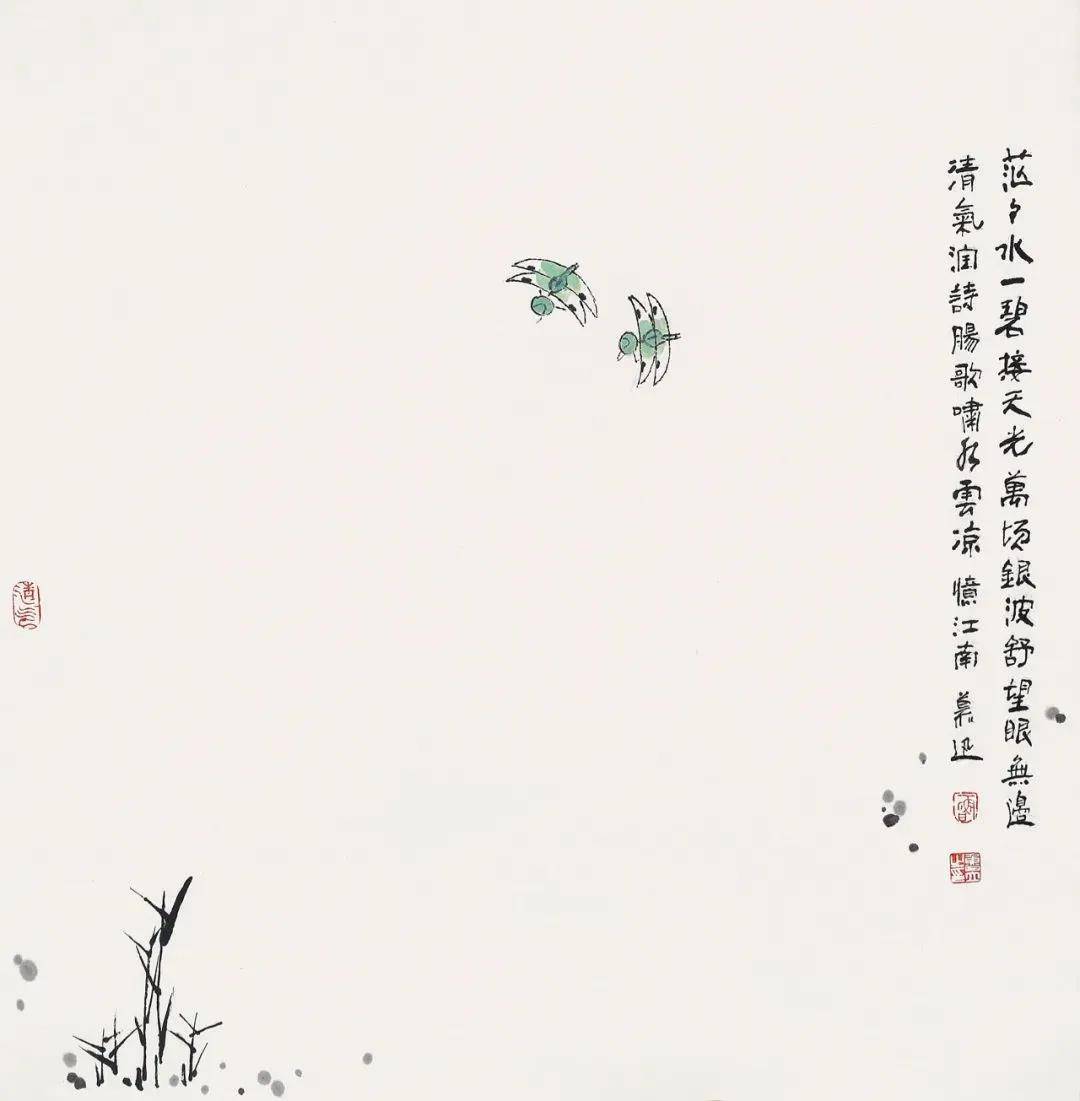 茫々水一碧接天光萬顷銀波舒望眼無邊
清氣润詩腸歌嘯水雲凉 憶江南 慕迅